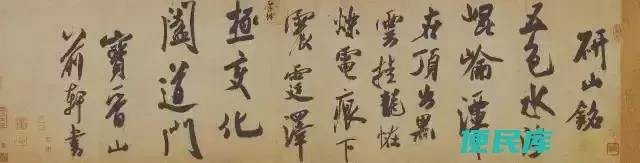 研山銘
五色水浮
崑崙潭
在頂出黑
雲挂龍怪
爍電痕下
震霆澤
極變化
闔道門
寶晉山
前軒書
便民库